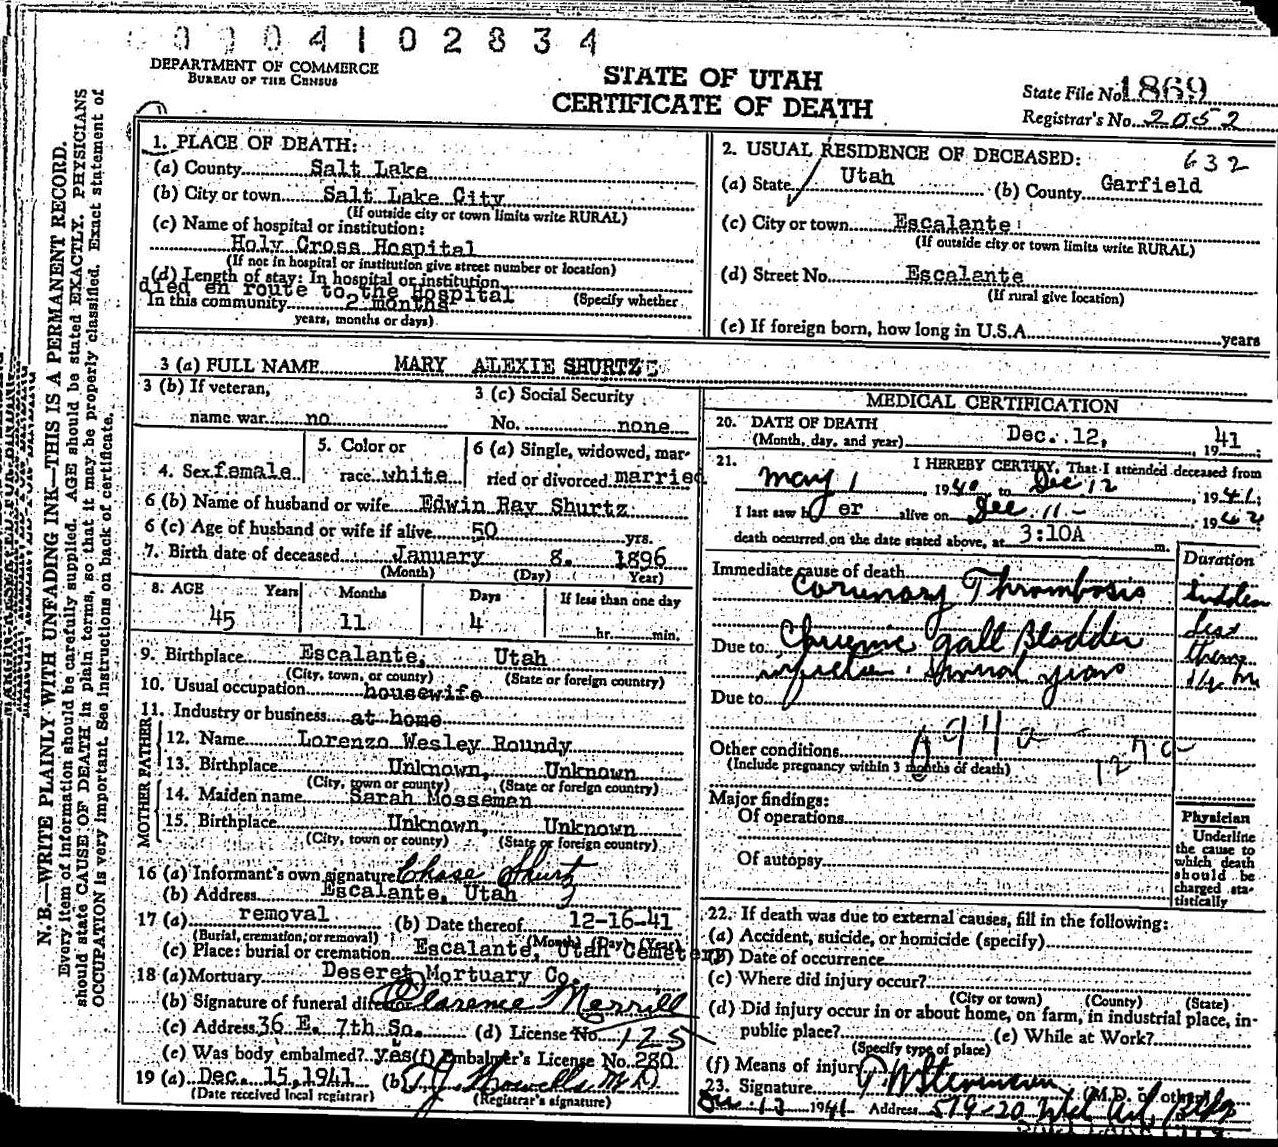 0004102834
DEPARTMENT OF COMMERCE
BUREAU OF THE CENSUS
STATE OF UTAH
CERTIFICATE OF DEATH
State File No. 1869
Registrar's No. 2052
N. B.—WRITE PLAINLY WITH UNFADING INK—THIS IS A PERMANENT RECORD.
Every item of information should be carefully supplied. AGE should be stated EXACTLY. PHYSICIANS
should state CAUSE OF DEATH in plain terms, so that it may be properly classified. Exact statement of
OCCUPATION is very important. See instructions on back of certificate.
1. PLACE OF DEATH:
(a) County Salt Lake
(b) City or town Salt Lake City
(If outside city or town limits write RURAL)
(c) Name of hospital or institution:
Holy Cross Hospital
(If not in hospital or institution give street number or location)
(d) Length of stay: In hospital or institution
died en route to the hospital
(Specify whether
In this community 2 months
years, months or days)
2. USUAL RESIDENCE OF DECEASED: 632
(a) State Utah (b) County Garfield
(c) City or town Escalante
(If outside city or town limits write RURAL)
(d) Street No. Escalante
(If rural give location)
(e) If foreign born, how long in U.S.A. years
3 (a) FULL NAME MARY ALEXIE SHURTZ
3 (b) If veteran,
name war no
3 (c) Social Security
No. none
4. Sex female
5. Color or
race white
6 (a) Single, widowed, mar-
ried or divorced married
6 (b) Name of husband or wife Edwin Ray Shurtz
6 (c) Age of husband or wife if alive 50 yrs.
7. Birth date of deceased January 8. 1896
(Month) (Day) (Year)
8. AGE Years Months Days If less than one day
45 11 4 hr. min.
9. Birthplace Escalante, Utah
(City, town, or county) (State or foreign country)
10. Usual occupation housewife
11. Industry or business at home
FATHER
12. Name Lorenzo Wesley Roundy
13. Birthplace Unknown, Unknown
(City, town or county) (State or foreign country)
MOTHER
14. Maiden name Sarah Mosseman
15. Birthplace Unknown, Unknown
(City, town or county) (State or foreign country)
16 (a) Informant's own signature Chase Shurtz
(b) Address Escalante, Utah
17 (a) removal (b) Date thereof 12-16-41
(Burial, cremation, or removal) (Month) (Day) (Year)
(c) Place: burial or cremation Escalante, Utah Cemetery
18 (a) Mortuary Deseret Mortuary Co.
(b) Signature of funeral director Clarence Merrill
(c) Address 36 E. 7th So. (d) License No. 125
(e) Was body embalmed? yes (f) Embalmer's License No. 280
19 (a) Dec. 15, 1941 (b) T. J. Howells M.D.
(Date received local registrar) (Registrar's signature)
MEDICAL CERTIFICATION
20. DATE OF DEATH
(Month, day, and year) Dec. 12, 1941
21. I HEREBY CERTIFY, That I attended deceased from
May 1 1940 to Dec 12, 1941;
I last saw her alive on Dec 11 -, 19
death occurred on the date stated above, at 3:10A m.
Immediate cause of death Duration
Coronary Thrombosis sudden
less
Due to Chronic Gall Bladder than
infection. Several years 1/2 hr
Due to
94a
Other conditions 127a
(Include pregnancy within 3 months of death)
Major findings:
Of operations
Of autopsy
Physician
Underline
the cause to
which death
should be
charged sta-
tistically
22. If death was due to external causes, fill in the following:
(a) Accident, suicide, or homicide (specify)
(b) Date of occurrence
(c) Where did injury occur?
(City or town) (County) (State)
(d) Did injury occur in or about home, on farm, in industrial place, in-
public place? (e) While at Work?
(Specify type of place)
(f) Means of injury
23. Signature Stevenson (M.D. or other)
Dec. 13 1941 Address 519-20 Med Art Bldg
SALT LAKE CITY